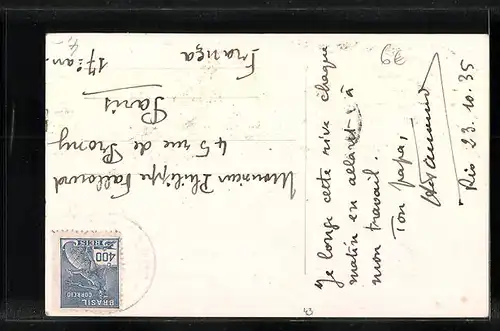 Je longe cette rive chaque
matin en allant à
mon travail.
Ton papa,
Rio 23.10.35
Monsieur Philippe
45 rue de Prony
Paris
17e arr.
França
BRASIL
CORREIO
400
REIS